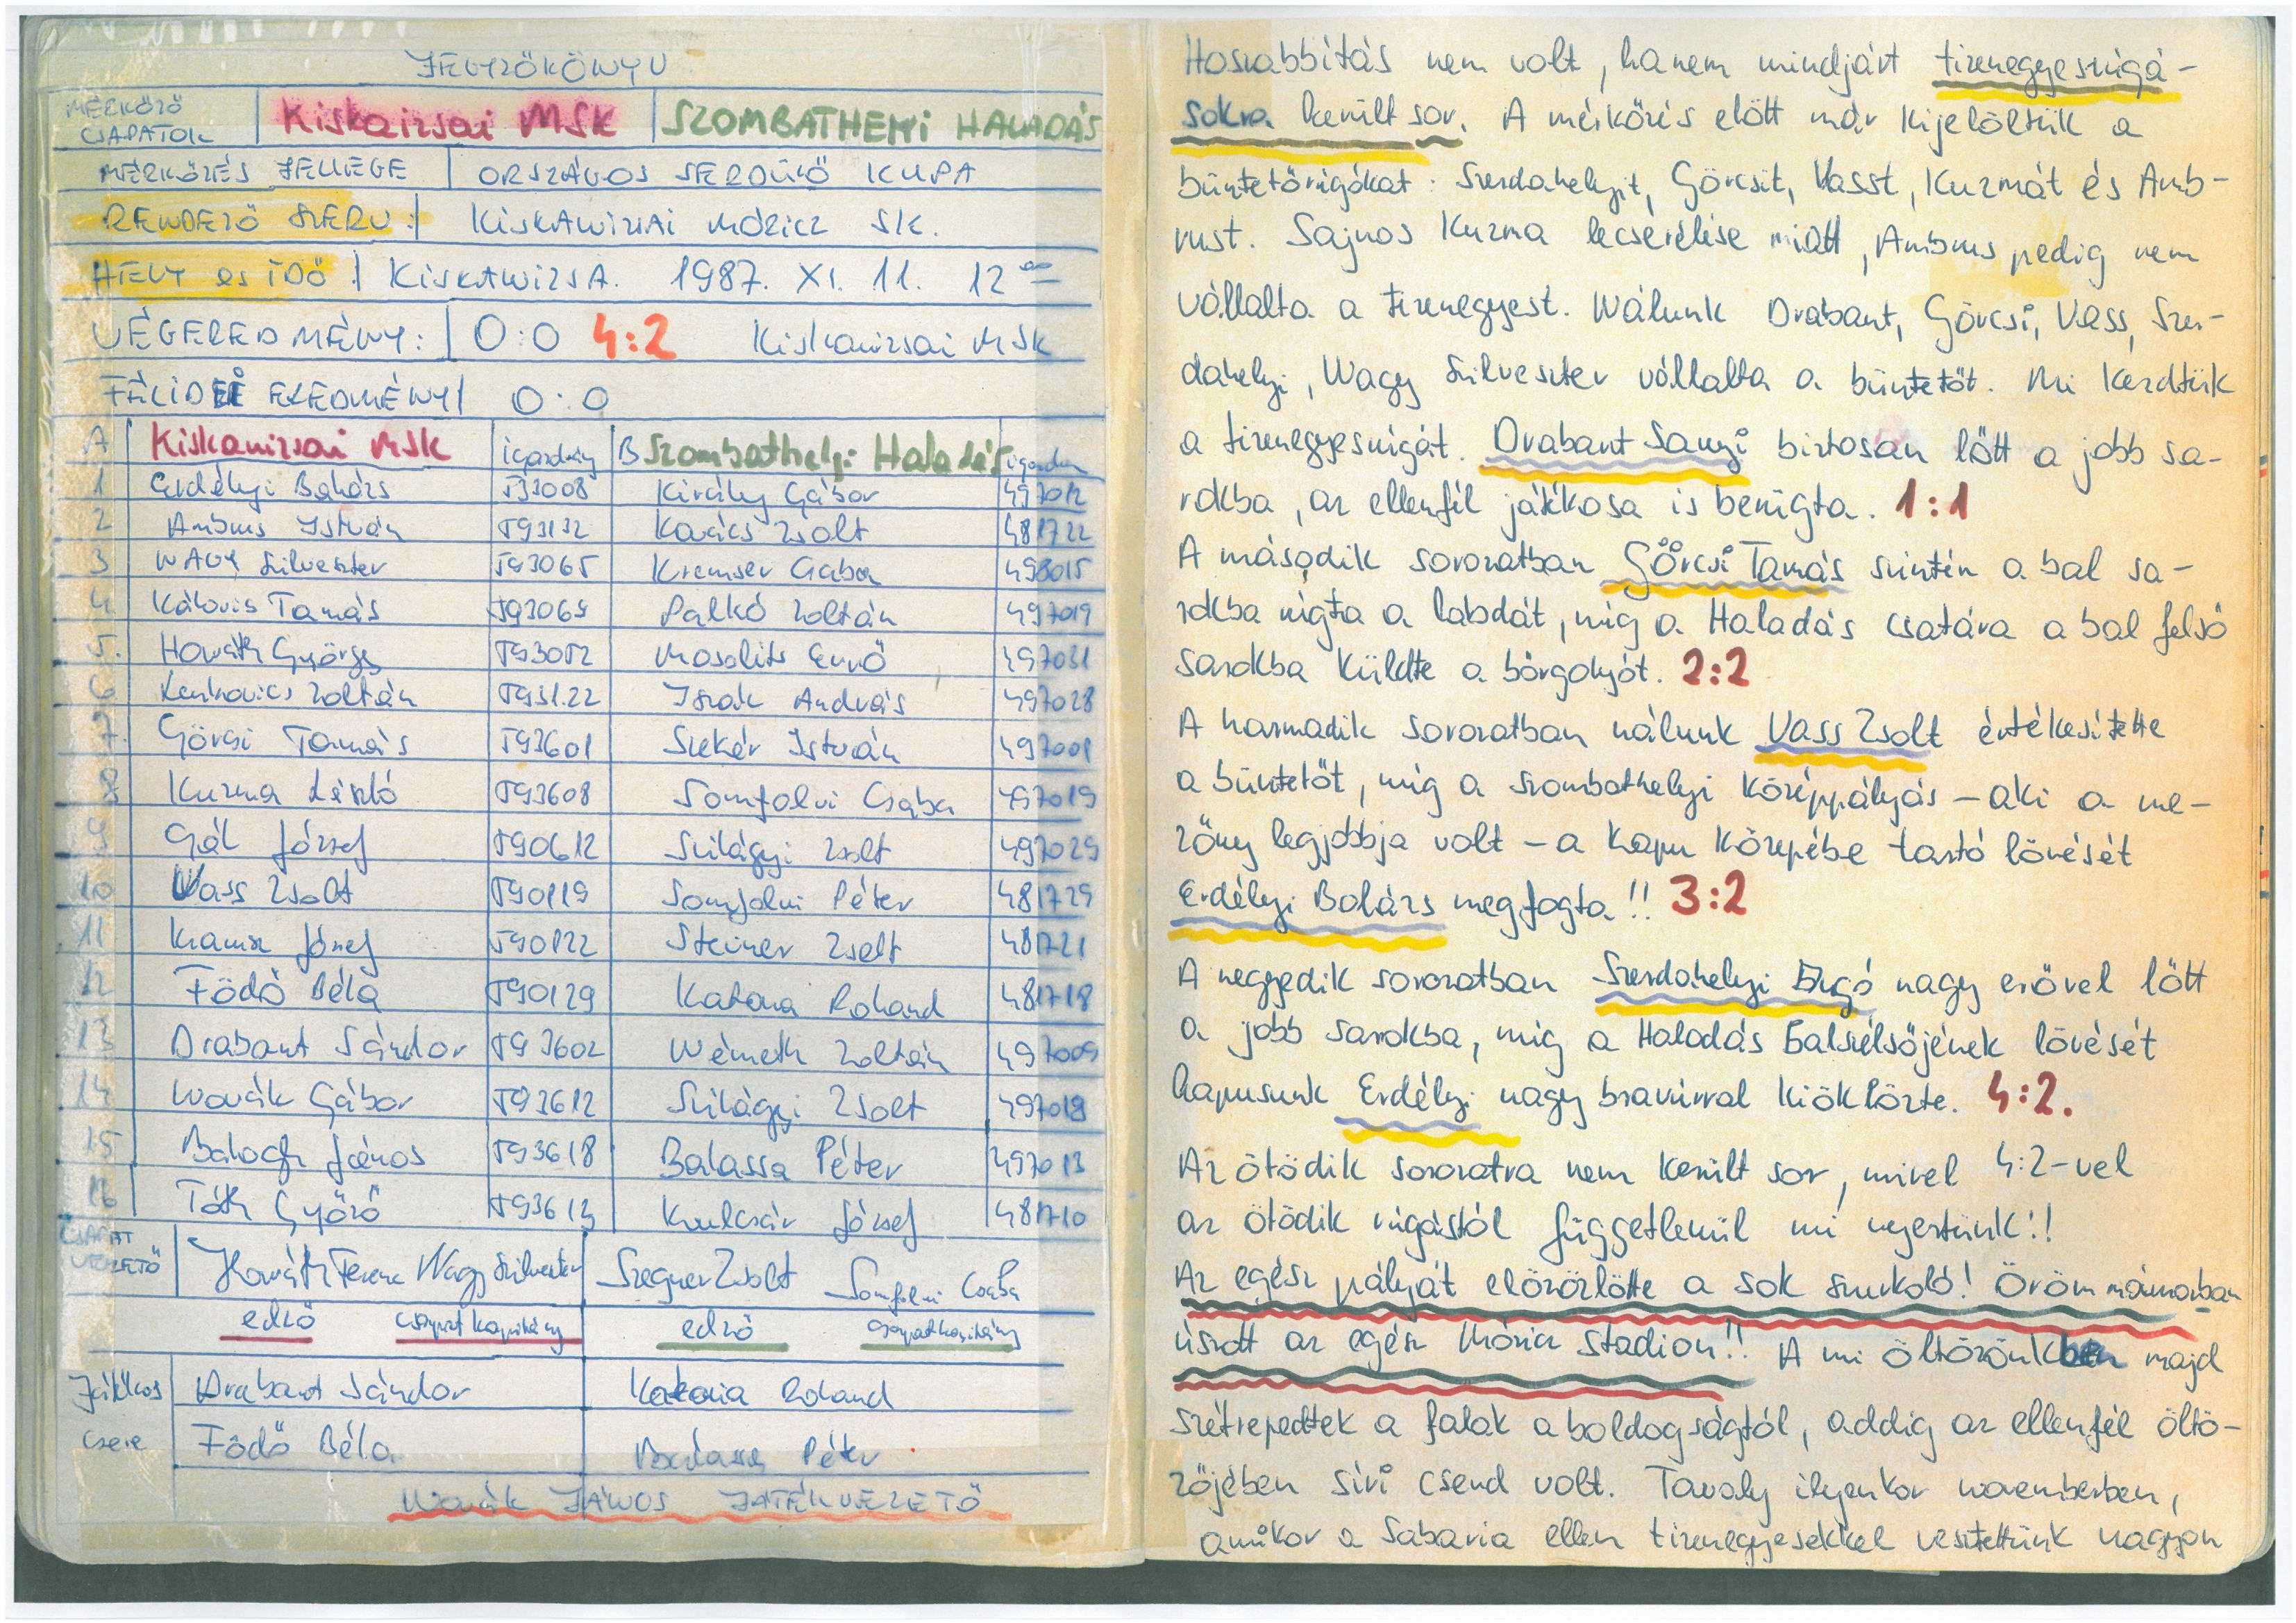 JEGYZŐKÖNYV
MÉRKŐZŐ CSAPATOK Kiskanizsai MSK SZOMBATHELYI HALADÁS
MÉRKŐZÉS JELLEGE ORSZÁGOS SERDÜLŐ KUPA
RENDEZŐ SZERV: KISKANIZSAI MÓRICZ SK.
HELY és IDŐ KISKANIZSA. 1987. XI. 11. 12 00
VÉGEREDMÉNY: 0:0 4:2 Kiskanizsai MSK
FÉLIDEI EREDMÉNY 0:0
A Kiskanizsai MSK igazolvány B Szombathelyi Haladás
1 Erdélyi Balázs 593008 Király Gábor 497012
2 Ambrus István 593132 Kovács Zsolt 481722
3 NAGY Szilveszter 593065 Kremser Gábor 498015
4 Kálovis Tamás 593069 Palkó Zoltán 497019
5. Horváth György 593012 Mosolits Ernő 497031
6 Zoltán 593122 Izsák András 497028
7. Görcsi Tamás 593601 Szekér István 497001
8 Kuzma László 593608 Somfalvi Csaba 497019
9 Gál József 590612 Szilágyi Zsolt 497029
10 Vass Zsolt 590119 Somfalvi Péter 481729
11 József 590122 Steiner Zsolt 481721
12 Födő Béla 590129 Katona Roland 481718
13 Drabant Sándor 593602 Németh Zoltán 497009
14 Novák Gábor 593612 Szilágyi Zsolt 497018
15 Balogh János 593618 Balassa Péter 497013
16 Tóth Győző 593613 Kulcsár József 481710
CSAPAT VEZETŐ Horváth Ferenc Nagy Szilveszter Szegner Zsolt Somfalvi Csaba
edző csapatkapitány edző csapatkapitány
Játékos Drabant Sándor Katona Roland
csere Födő Béla Balassa Péter
Novák JÁNOS JÁTÉKVEZETŐ
Hosszabbítás nem volt, hanem mindjárt tizenegyesrúgá-
sokra került sor. A mérkőzés előtt már kijelöltük a
büntetőrúgókat: Szerdahelyit, Görcsit, Vasst, Kuzmát és Amb-
rust. Sajnos Kuzma lecserélése miatt, Ambrus pedig nem
vállalta a tizenegyest. Nálunk Drabant, Görcsi, Vass, Szer-
dahelyi, Nagy Szilveszter vállalta a büntetőt. Mi kezdtük
a tizenegyesrúgát. Drabant Sanyi biztosan lőtt a jobb sa-
rokba, az ellenfél játékosa is berúgta. 1:1
A második sorozatban Görcsi Tamás szintén a bal sa-
rokba rúgta a labdát, míg a Haladás csatára a bal felső
sarokba küldte a bőrgolyót. 2:2
A harmadik sorozatban nálunk Vass Zsolt értékesítette
a büntetőt, míg a szombathelyi középpályás - aki a me-
zőny legjobbja volt - a kapu közepébe tartó lövését
Erdélyi Balázs megfogta!! 3:2
A negyedik sorozatban Szerdahelyi nagy erővel lőtt
a jobb sarokba, míg a Haladás balszélsőjének lövését
kapusunk Erdélyi nagy bravúrral kiöklözte. 4:2.
Az ötödik sorozatra nem került sor, mivel 4:2-vel
az ötödik rúgástól függetlenül mi nyertünk!!
Az egész pályát elözönlötte a sok szurkoló! Öröm mámorban
úszott az egész Móricz stadion!! A mi öltözőnkben majd
szétrepedtek a falak a boldogságtól, addig az ellenfél öltö-
zőjében síri csend volt. Tavaly ilyenkor novemberben,
amikor a Sabaria ellen tizenegyesekkel vesztettünk nagyon